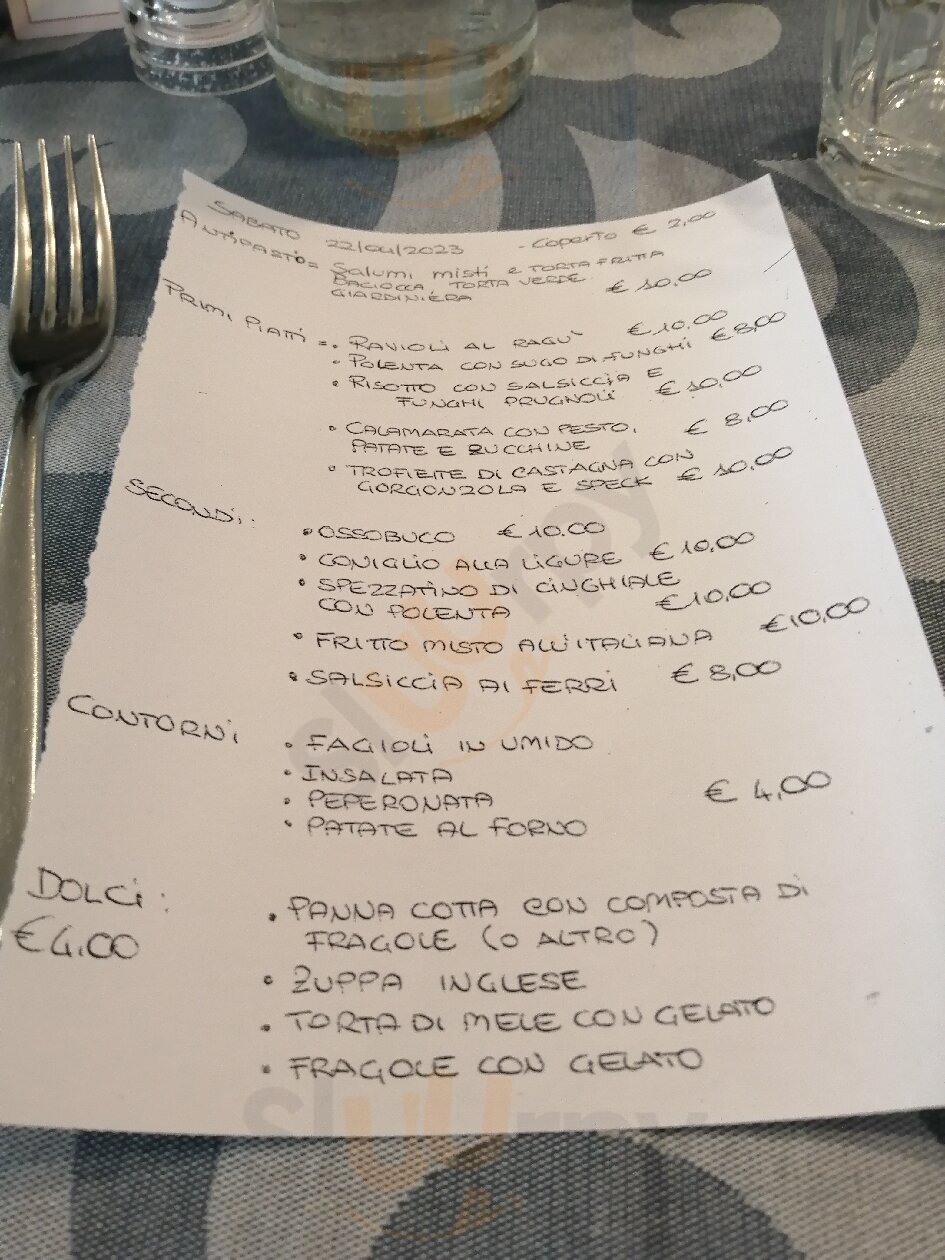 SABATO 22/04/2023 - Coperto € 2,00
ANTIPASTO = Salumi misti e TORTA FRITTA
BACIOCCA, TORTA VERDE
GIARDINIERA € 10,00
PRIMI PIATTI = • RAVIOLI AL RAGU' € 10.00
• POLENTA CON SUGO DI FUNGHI € 8,00
• RISOTTO CON SALSICCIA E
FUNGHI PRUGNOLI € 10,00
• CALAMARATA CON PESTO, € 8,00
PATATE E ZUCCHINE
• TROFIETTE DI CASTAGNA CON
GORGONZOLA E SPECK € 10,00
SECONDI:
• OSSOBUCO € 10.00
• CONIGLIO ALLA LIGURE € 10,00
• SPEZZATINO DI CINGHIALE
CON POLENTA € 10,00
• FRITTO MISTO ALL'ITALIANA € 10,00
• SALSICCIA AI FERRI € 8,00
CONTORNI
• FAGIOLI IN UMIDO
• INSALATA
• PEPERONATA € 4,00
• PATATE AL FORNO
DOLCI:
€ 4.00
• PANNA COTTA CON COMPOSTA DI
FRAGOLE (O ALTRO)
• ZUPPA INGLESE
• TORTA DI MELE CON GELATO
• FRAGOLE CON GELATO
sluurpy
sluurpy